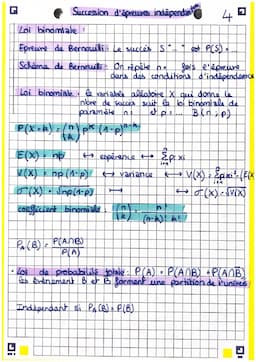 Succession d'épreuves indépendantes 4
Loi binomiale :
Epreuve de Bernoulli : Le succès S " " est P(S) =
Schéma de Bernoulli : On répète n = fois l'épreuve
dans des conditions d'indépendance
Loi binomiale : la variable aléatoire X qui donne le
nbre de succès suit la loi binomiale de
paramètre n = et p = ... B(n ; p)
P(X=k) = (n k) p^k (1-p)^n-k
E(X) = np ↔ espérance ↔ Σ pi xi
V(X) = np(1-p) ↔ variance ↔ V(X) = Σ pi xi² - (E(X
σ(X) = √np(1-p) ↔ σ(X) = √V(X)
coefficient binomiale : (n k) = n! / (n-k)! k!
P_A(B) = P(A∩B) / P(A)
• Loi de probabilité totale : P(A) = P(A∩B) + P(A∩B̅)
les événement B et B̅ forment une partition de l'univers
Indépendant si P_A(B) = P(B)